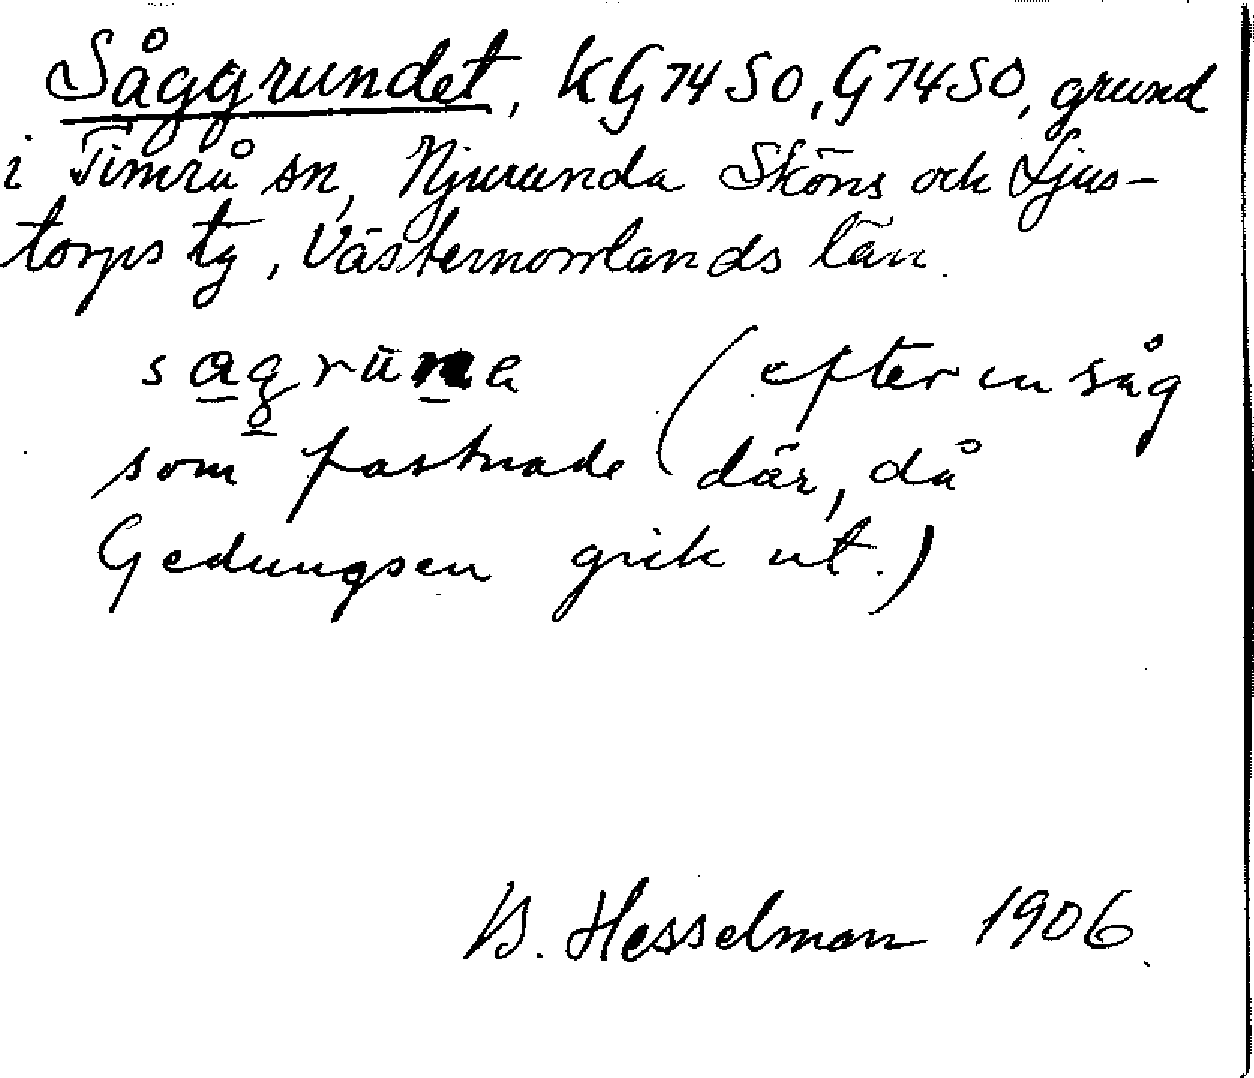 Såggrundet, KG 74 SO, G 74 SO, grund
i Timrå sn, Njurunda Sköns och Ljus-
torps tg, Västernorrlands län.
(efter en såg
som fastnade där, då
Gedungsen gick ut.)
B. Hesselman 1906